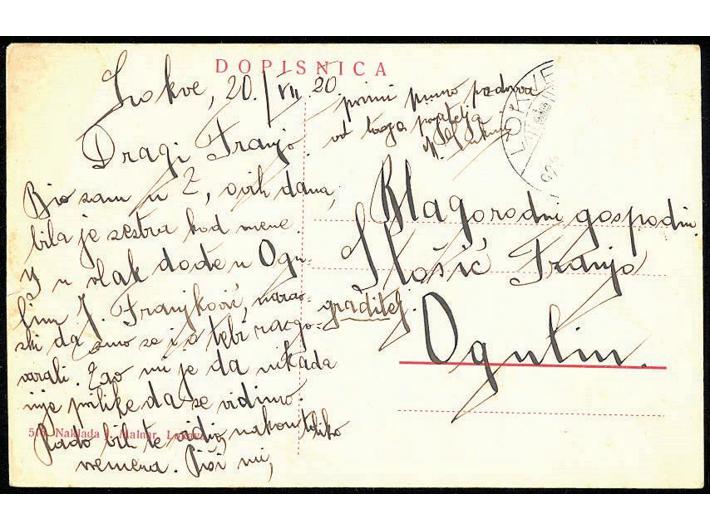 DOPISNICA
Lokve, 20./VII. 20.
Dragi Franjo
Bio sam u Z, ovih dana,
bila je sestra kod mene.
U vlak dođe u Ogu-
linu J. Franjković, narav-
ski da smo se i o tebi razgo-
varali. Žao mi je da nikada
nije prilike da se vidimo.
Rado bih te vidio, nakon toliko
vremena. Piši mi,
primi puno pozdrava
od tvoga prijatelja
LOKVE
Blagorodni gospodin
Ilošić Franjo
graditelj.
Ogulin.
518 Naklada J. Malnar, Lokve